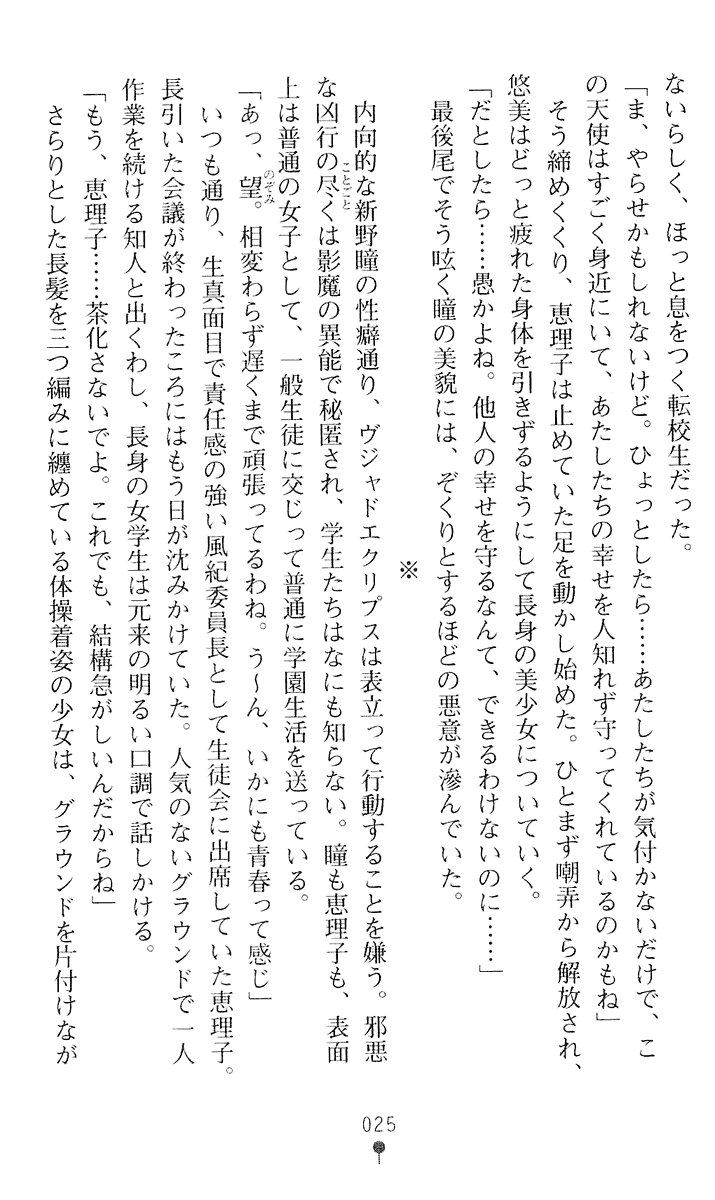 ないらしく、ほっと息をつく転校生だった。
「ま、やらせかもしれないけど。ひょっとしたら……あたしたちが気付かないだけで、こ
の天使はすごく身近にいて、あたしたちの幸せを人知れず守ってくれているのかもね」
そう締めくくり、恵理子は止めていた足を動かし始めた。ひとまず嘲弄から解放され、
悠美はどっと疲れた身体を引きずるようにして長身の美少女についていく。
「だとしたら……愚かよね。他人の幸せを守るなんて、できるわけないのに……」
最後尾でそう呟く瞳の美貌には、ぞくりとするほどの悪意が滲んでいた。
※
内向的な新野瞳の性癖通り、ヴジャドエクリプスは表立って行動することを嫌う。邪悪
な凶行の尽くは影魔の異能で秘匿され、学生たちはなにも知らない。瞳も恵理子も、表面
ことごと
上は普通の女子として、一般生徒に交じって普通に学園生活を送っている。
「あっ、望。相変わらず遅くまで頑張ってるわね。う～ん、いかにも青春って感じ」
のぞみ
いつも通り、生真面目で責任感の強い風紀委員長として生徒会に出席していた恵理子。
長引いた会議が終わったころにはもう日が沈みかけていた。人気のないグラウンドで一人
作業を続ける知人と出くわし、長身の女学生は元来の明るい口調で話しかける。
「もう、恵理子……茶化さないでよ。これでも、結構急がしいんだからね」
さらりとした長髪を三つ編みに纏めている体操着姿の少女は、グラウンドを片付けなが
025